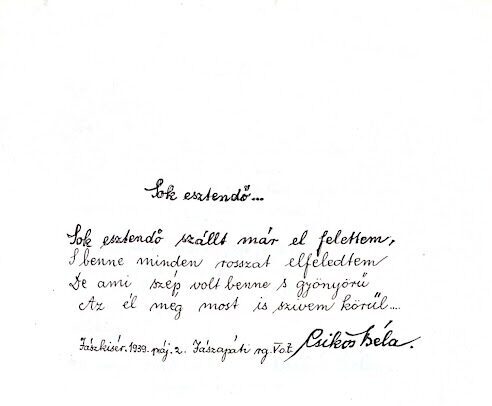 Sok esztendő...
Sok esztendő szállt már el felettem,
S benne minden rosszat elfeledtem
De ami szép volt benne s gyönyörű
Az él még most is szivem körül....
Jászkisér. 1939. máj. 2. Jászapáti rg. V.o.t. Csikós Béla.